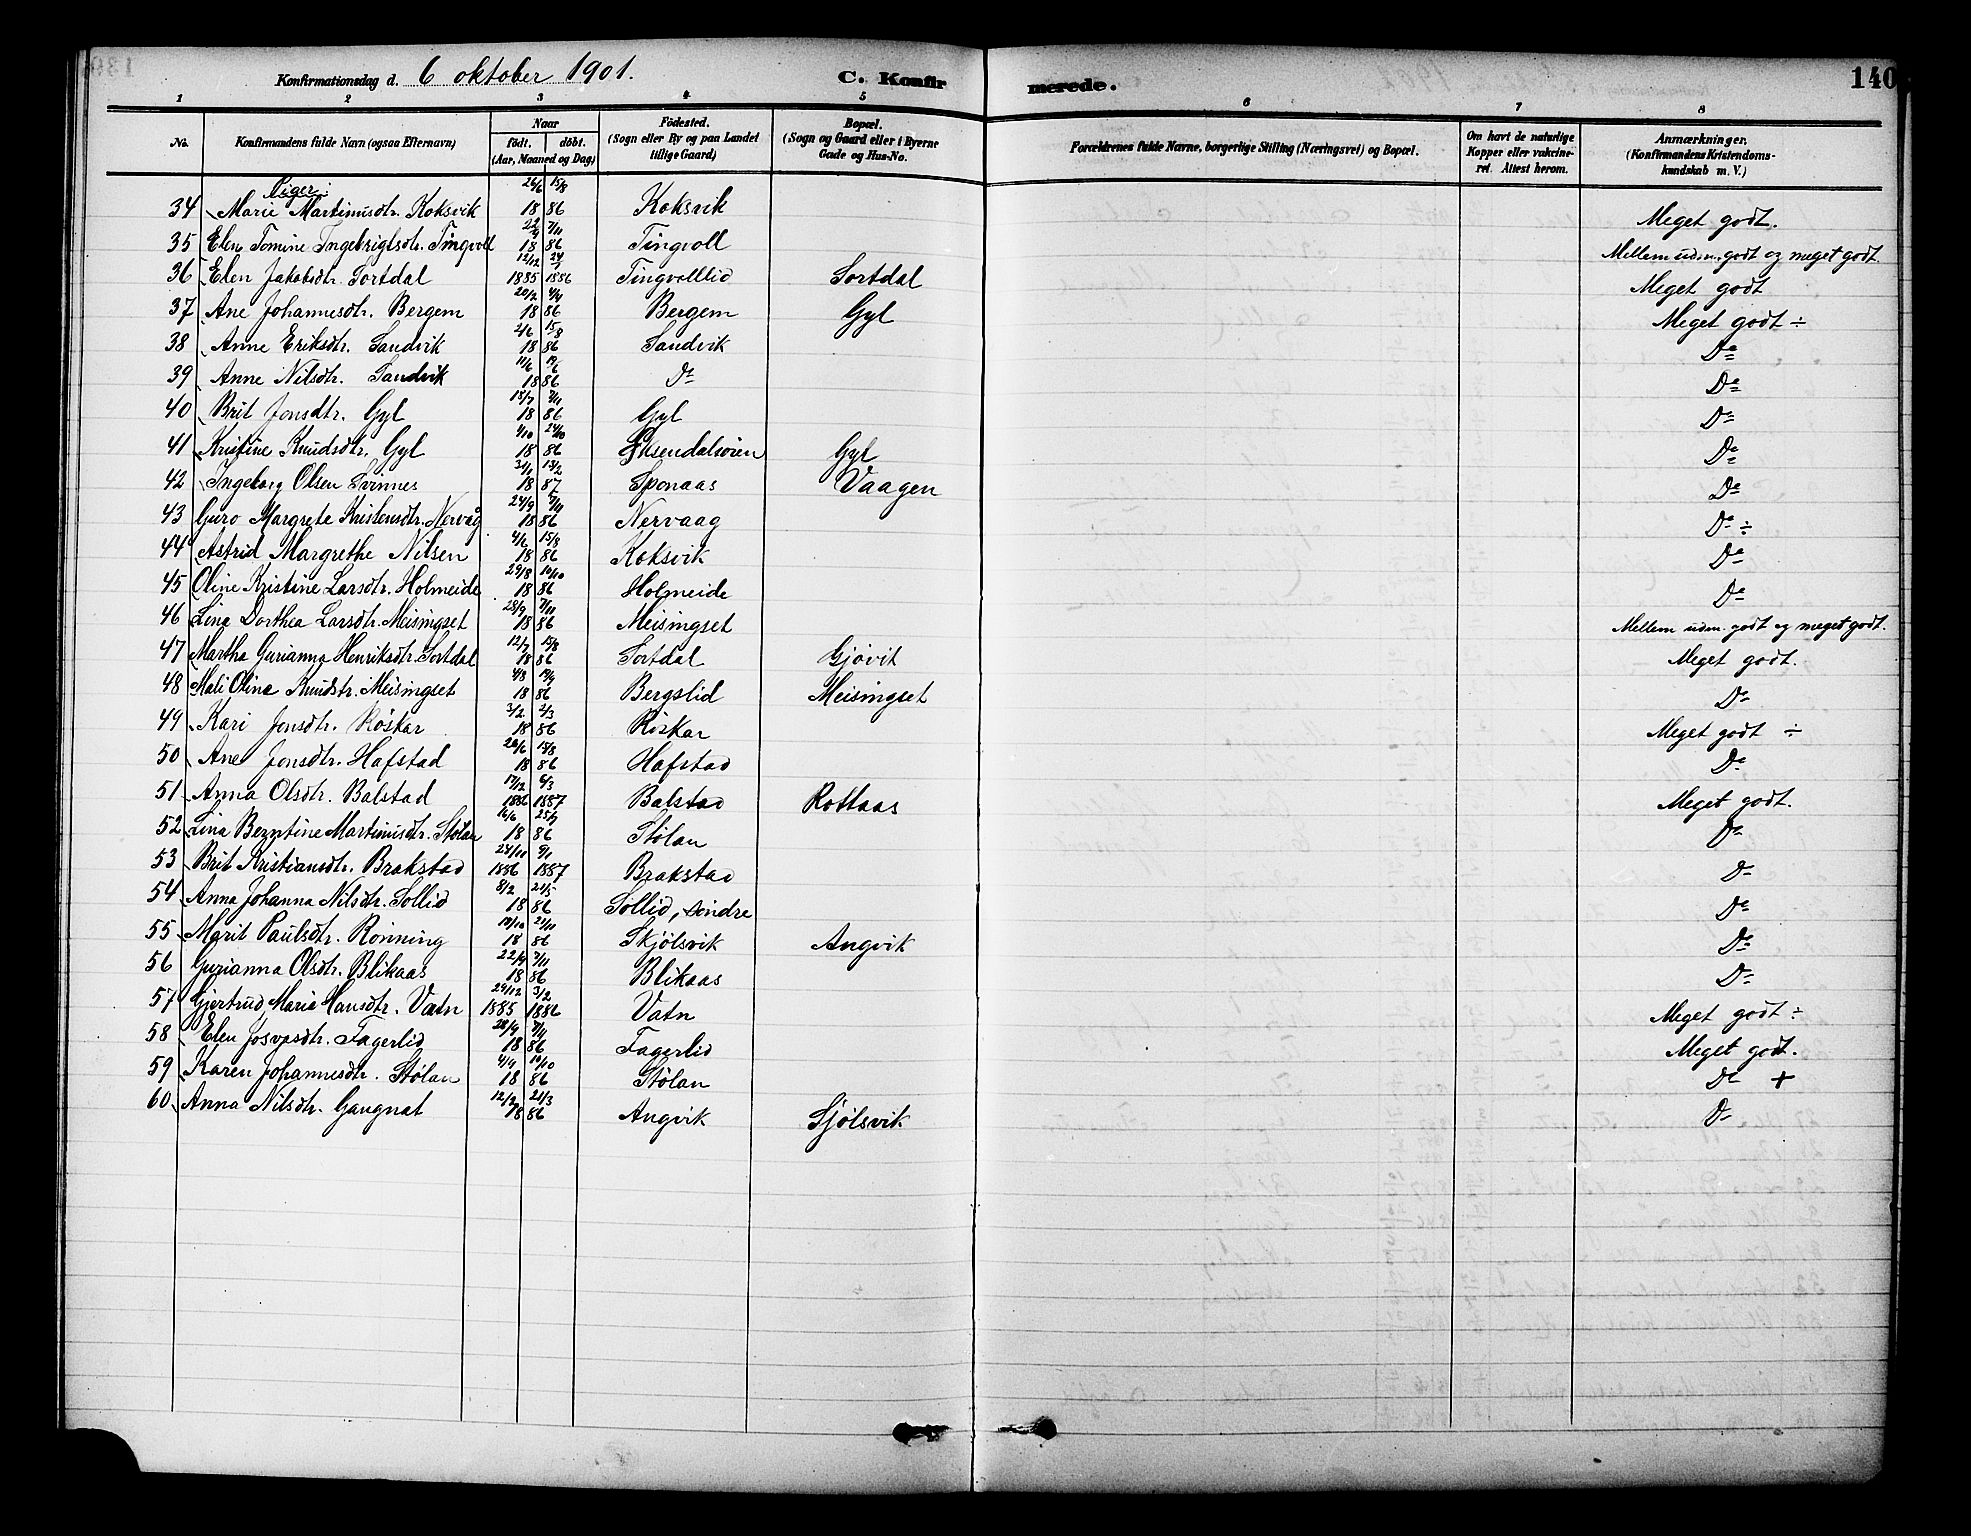 Konfirmationsdag d. 6 oktober 1901. C. Konfirmerede. 140
1 2 3 4 5 6 7 8
No. Konfirmandens fulde Navn (ogsaa Efternavn) Naar født, døbt. (Aar, Maaned og Dag) Fødested. (Sogn eller By og paa Landet tillige Gaard) Bopæl. (Sogn og Gaard eller i Byerne Gade og Hus-No. Forældrenes fulde Navne, borgerlige Stilling (Næringsvei) og Bopæl. Om havt de naturlige Kopper eller vakcineret. Attest herom. Anmærkninger. (Konfirmandens Kristendomskundskab m. V.)
Piger:
34 Marie Martinusdtr. Koksvik 26/6 15/8 18 86 Koksvik Meget godt.
35 Elen Tomine Ingebrigtsdtr. Tingvoll 22/9 7/11 18 86 Tingvoll Mellem udm. godt og meget godt.
36 Elen Jakobsdtr. Sortdal 12/12 1885 1886 Tingvolllid Sortdal Meget godt
37 Ane Johannesdtr. Bergem 20/2 4/4 18 86 Bergem Gyl Meget godt ÷
38 Anne Eriksdtr. Sandvik 2/6 15/8 18 86 Sandvik Do
39 Anne Nilsdtr. Sandvik 11/6 18 86 Do Do
40 Brit Jonsdtr. Gyl 18/7 18 86 Gyl Do
41 Kristine Knudsdtr. Gyl 4/10 24/10 18 86 Øksendalsøren Gyl Do
42 Ingeborg Olsen Svinnes 13/2 18 87 Sponaas Vaagen Do
43 Guro Margrete Kristensdtr. Nervåg 24/9 7/11 18 86 Nervaag Do ÷
44 Astrid Margrethe Nilsen 4/6 15/8 18 86 Koksvik Do
45 Oline Kristine Larsdtr. Holmeide 29/8 10/10 18 86 Holmeide Do
46 Lina Dorthea Larsdtr. Meisingset 28/9 7/11 18 86 Meisingset Mellem udm. godt og meget godt.
47 Martha Gurianna Henriksdtr. Sortdal 12/7 15/8 18 86 Sortdal Gjøvit Meget godt.
48 Mali Olina Knudstr. Meisingset 4/8 19/9 18 86 Bergslid Meisingset Do
49 Kari Jonsdtr. Röskar 3/2 2/3 18 86 Röskar Meget godt ÷
50 Ane Jonsdtr. Hafstad 20/6 15/8 18 86 Hafstad Do
51 Anna Olsdtr. Balstad 17/12 6/3 1886 1887 Balstad Rottaas Meget godt.
52 Lina Berntine Martinusdtr. Stølan 16/6 25/7 18 86 Stølan Do
53 Brit Kristiansdtr. Brakstad 24/11 9/1 1886 1887 Brakstad Do
54 Anna Johanna Nilsdtr. Sollid 8/2 21/5 18 86 Sollid, søndre Do
55 Marit Paulsdtr. Rönning 10/10 21/11 18 86 Skjölsvik Angvik Do
56 Gurianna Olsdtr. Blikaas 22/9 7/11 18 86 Blikaas Do
57 Gjertrud Maria Hansdtr. Vatn 29/12 3/2 1885 1886 Vatn Meget godt ÷
58 Elen Josvasdtr. Fagerlid 28/9 7/11 18 86 Fagerlid Meget godt.
59 Karen Johannesdtr. Stølan 4/9 10/10 18 86 Stølan Do +
60 Anna Nilsdtr. Gaugnat 12/2 21/3 18 86 Angvik Sjølsvik Do